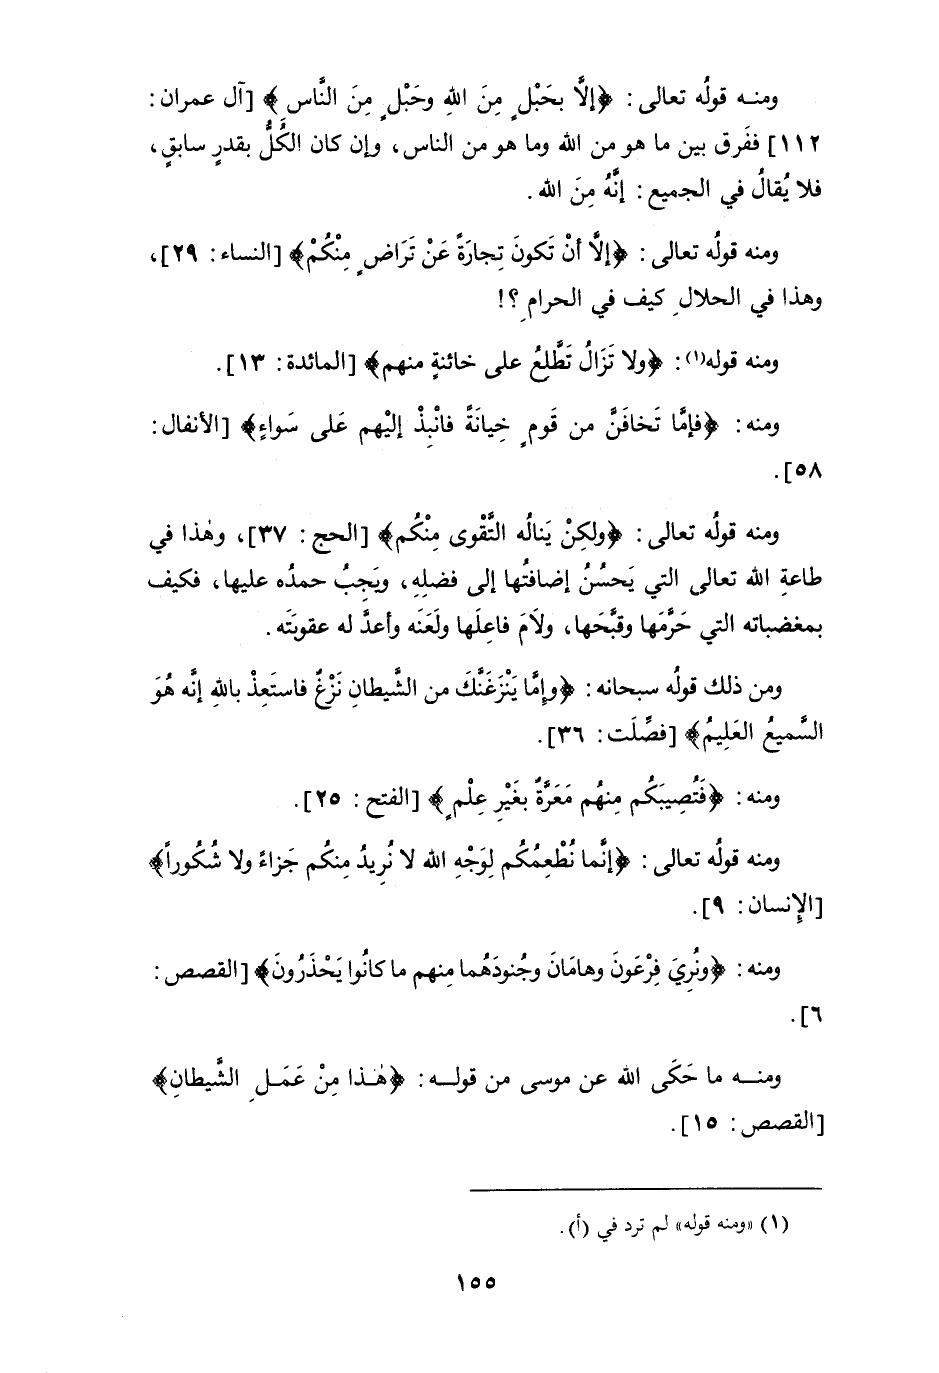 ومنه قولُه تعالى: ﴿إلَّا بحَبْلٍ مِنَ اللهِ وحَبْلٍ مِنَ النَّاسِ﴾ [آل عمران:
١١٢] ففَرق بين ما هو من الله وما هو من الناس، وإن كان الكُلُّ بقدرٍ سابقٍ،
فلا يُقالُ في الجميع: إنَّهُ مِنَ الله.
ومنه قولُه تعالى: ﴿إلَّا أنْ تَكونَ تِجارَةً عَنْ تَرَاضٍ مِنْكُمْ﴾ [النساء: ٢٩]،
وهذا في الحلالِ كيف في الحرامِ؟!
ومنه قوله(١): ﴿ولا تَزَالُ تَطَّلِعُ على خائنةٍ منهم﴾ [المائدة: ١٣].
ومنه: ﴿فإمَّا تَخافَنَّ من قَومٍ خِيانَةً فانْبِذْ إليْهم عَلى سَواءٍ﴾ [الأنفال:
٥٨].
ومنه قولُه تعالى: ﴿ولكِنْ يَنالُه التَّقْوى مِنْكُم﴾ [الحج: ٣٧]، وهٰذا في
طاعةِ الله تعالى التي يَحسُنُ إضافتُها إلى فضلِهِ، ويَجِبُ حمدُه عليها، فكيف
بمغضباته التي حَرَّمَها وقبَّحَها، ولَامَ فاعِلَها ولَعَنَه وأعدَّ له عقوبتَه.
ومن ذلك قولُه سبحانه: ﴿وإمَّا يَنْزَغَنَّكَ من الشَّيطانِ نَزْغٌ فاستَعِذْ باللهِ إنَّه هُوَ
السَّميعُ العَلِيمُ﴾ [فصِّلَت: ٣٦].
ومنه: ﴿فَتُصِيبَكُم مِنهُم مَعَرَّةٌ بغَيْرِ عِلْمٍ﴾ [الفتح: ٢٥].
ومنه قولُه تعالى: ﴿إنَّما نُطْعِمُكُم لِوَجْهِ الله لا نُرِيدُ مِنكُم جَزاءً ولا شُكُوراً﴾
[الإِنسان: ٩].
ومنه: ﴿ونُرِيَ فِرْعَونَ وهامَانَ وجُنودَهُما مِنهم ما كانُوا يَحْذَرُونَ﴾ [القصص:
٦].
ومنه ما حَكَى الله عن موسى من قوله: ﴿هٰذا مِنْ عَمَلِ الشَّيطانِ﴾
[القصص: ١٥].
(١) «ومنه قوله» لم ترد في (أ).
١٥٥